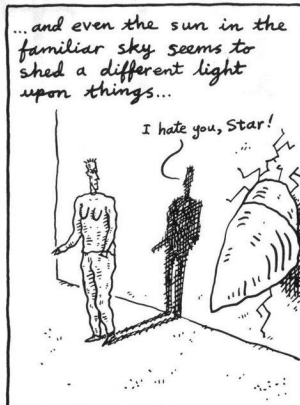 ... and even the sun in the
familiar sky seems to
shed a different light
upon things...
I hate you, Star!